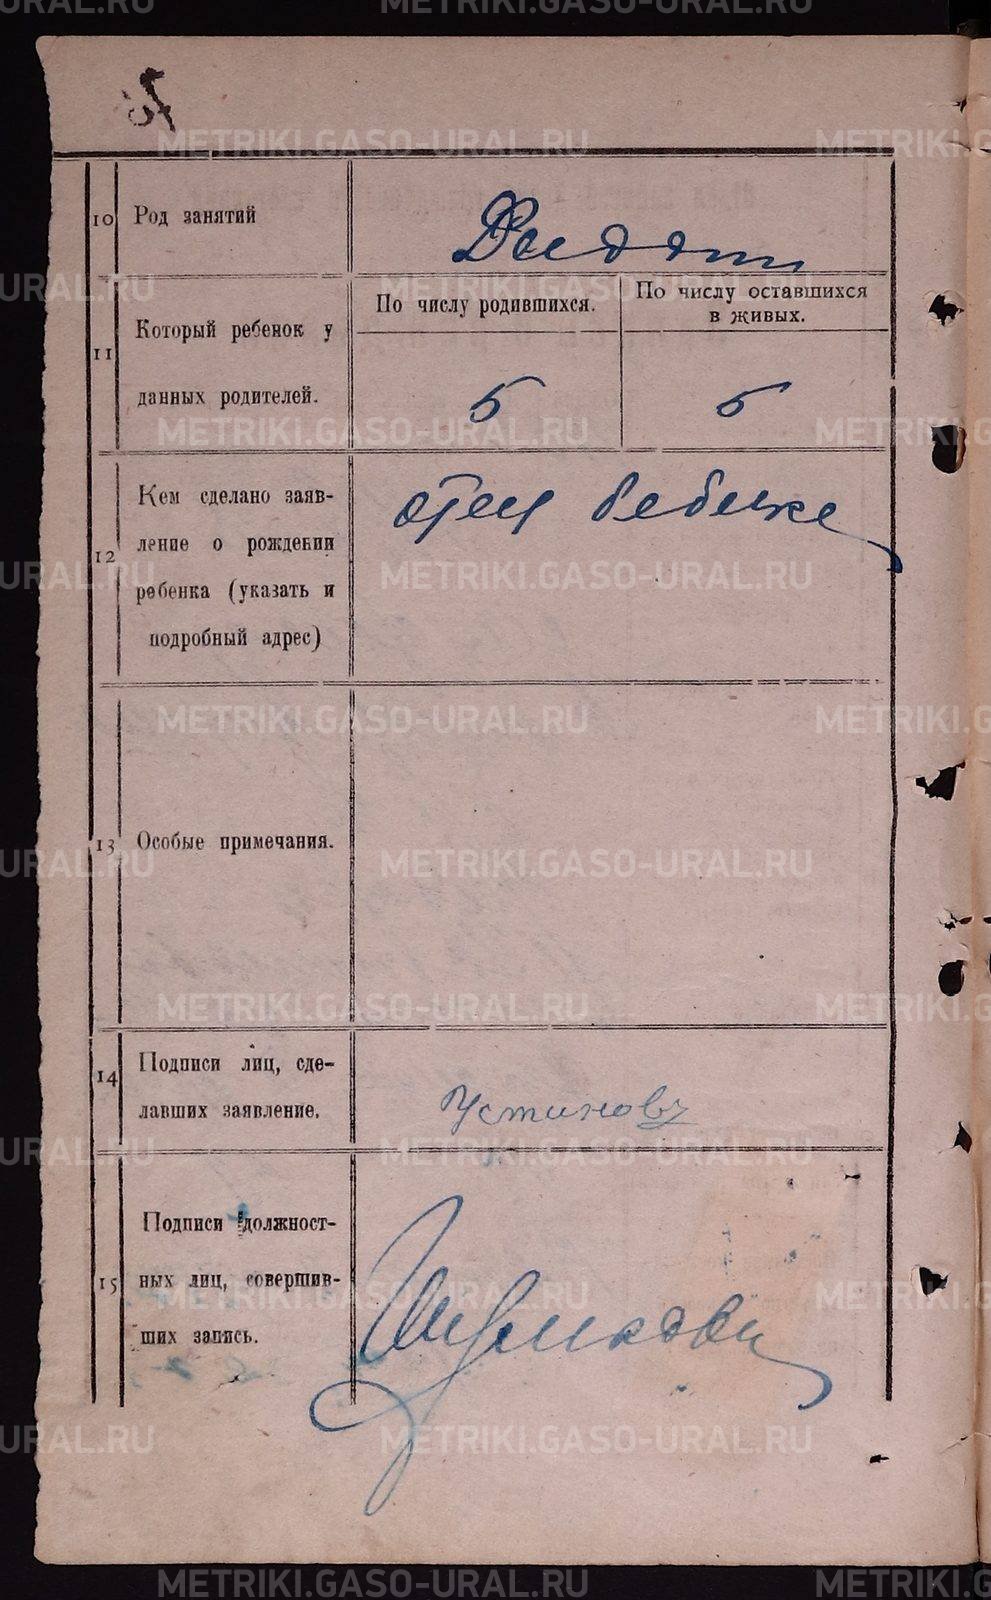 10 Род занятий
11 Который ребенок у
данных родителей.
По числу родившихся.
По числу оставшихся
в живых.
5
5
12 Кем сделано заяв-
ление о рождении
ребенка (указать и
подробный адрес)
отец ребенка
13 Особые примечания.
14 Подписи лиц, сде-
лавших заявление.
Устиновъ
15 Подписи должност-
ных лиц, совершив-
ших запись.
METRIKI.GASO-URAL.RU